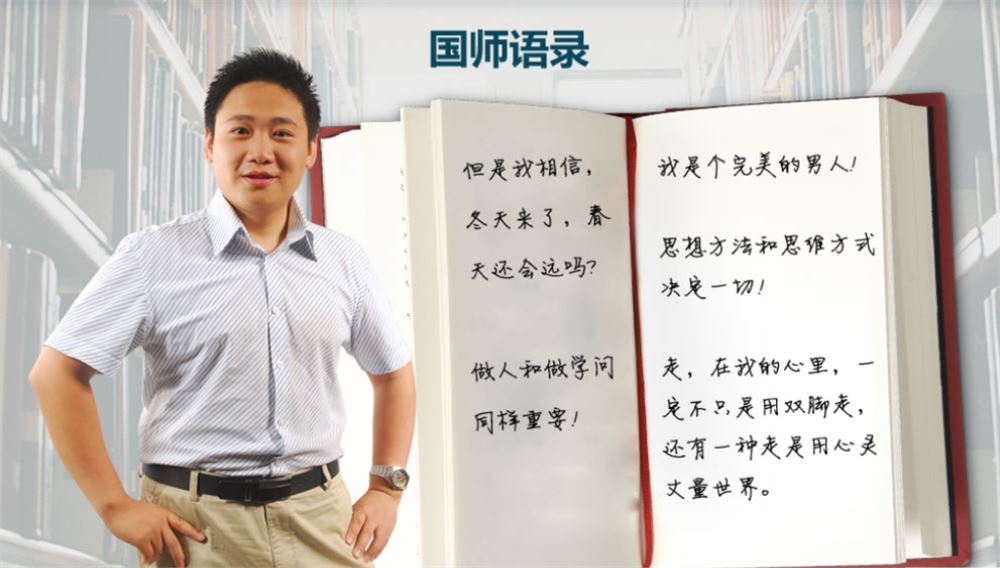 国师语录
但是我相信，
冬天来了，春
天还会远吗？
做人和做学问
同样重要！
我是个完美的男人！
思想方法和思维方式
决定一切！
走，在我的心里，一
定不只是用双脚走，
还有一种走是用心灵
丈量世界。